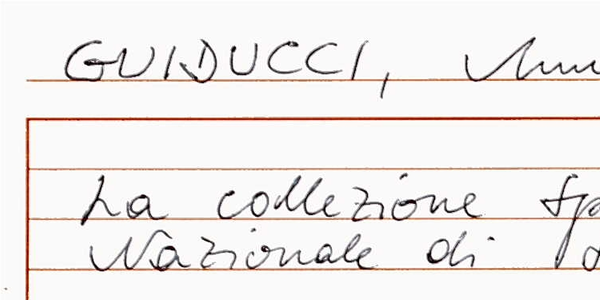 GUIDUCCI,
La collezione
Nazionale di